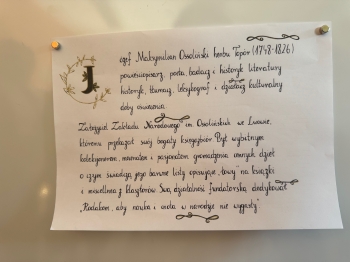 Józef Maksymilian Ossoliński herbu Topór (1748-1826)
powieściopisarz, poeta, badacz i historyk literatury
historyk, tłumacz, leksykograf i działacz kulturalny
doby oświecenia.
Założyciel Zakładu Narodowego im. Ossolińskich we Lwowie,
któremu przekazał swój bogaty księgozbiór. Był wybitnym
kolekcjonerem, mecenasem i pasjonatem gromadzenia cennych dzieł
o czym świadczą jego barwne listy opisujące "łowy" na książki
i miscellanea z klasztorów. Swą działalność fundatorską dedykował
"Rodakom, aby nauka i cnota w narodzie nie wygasły"